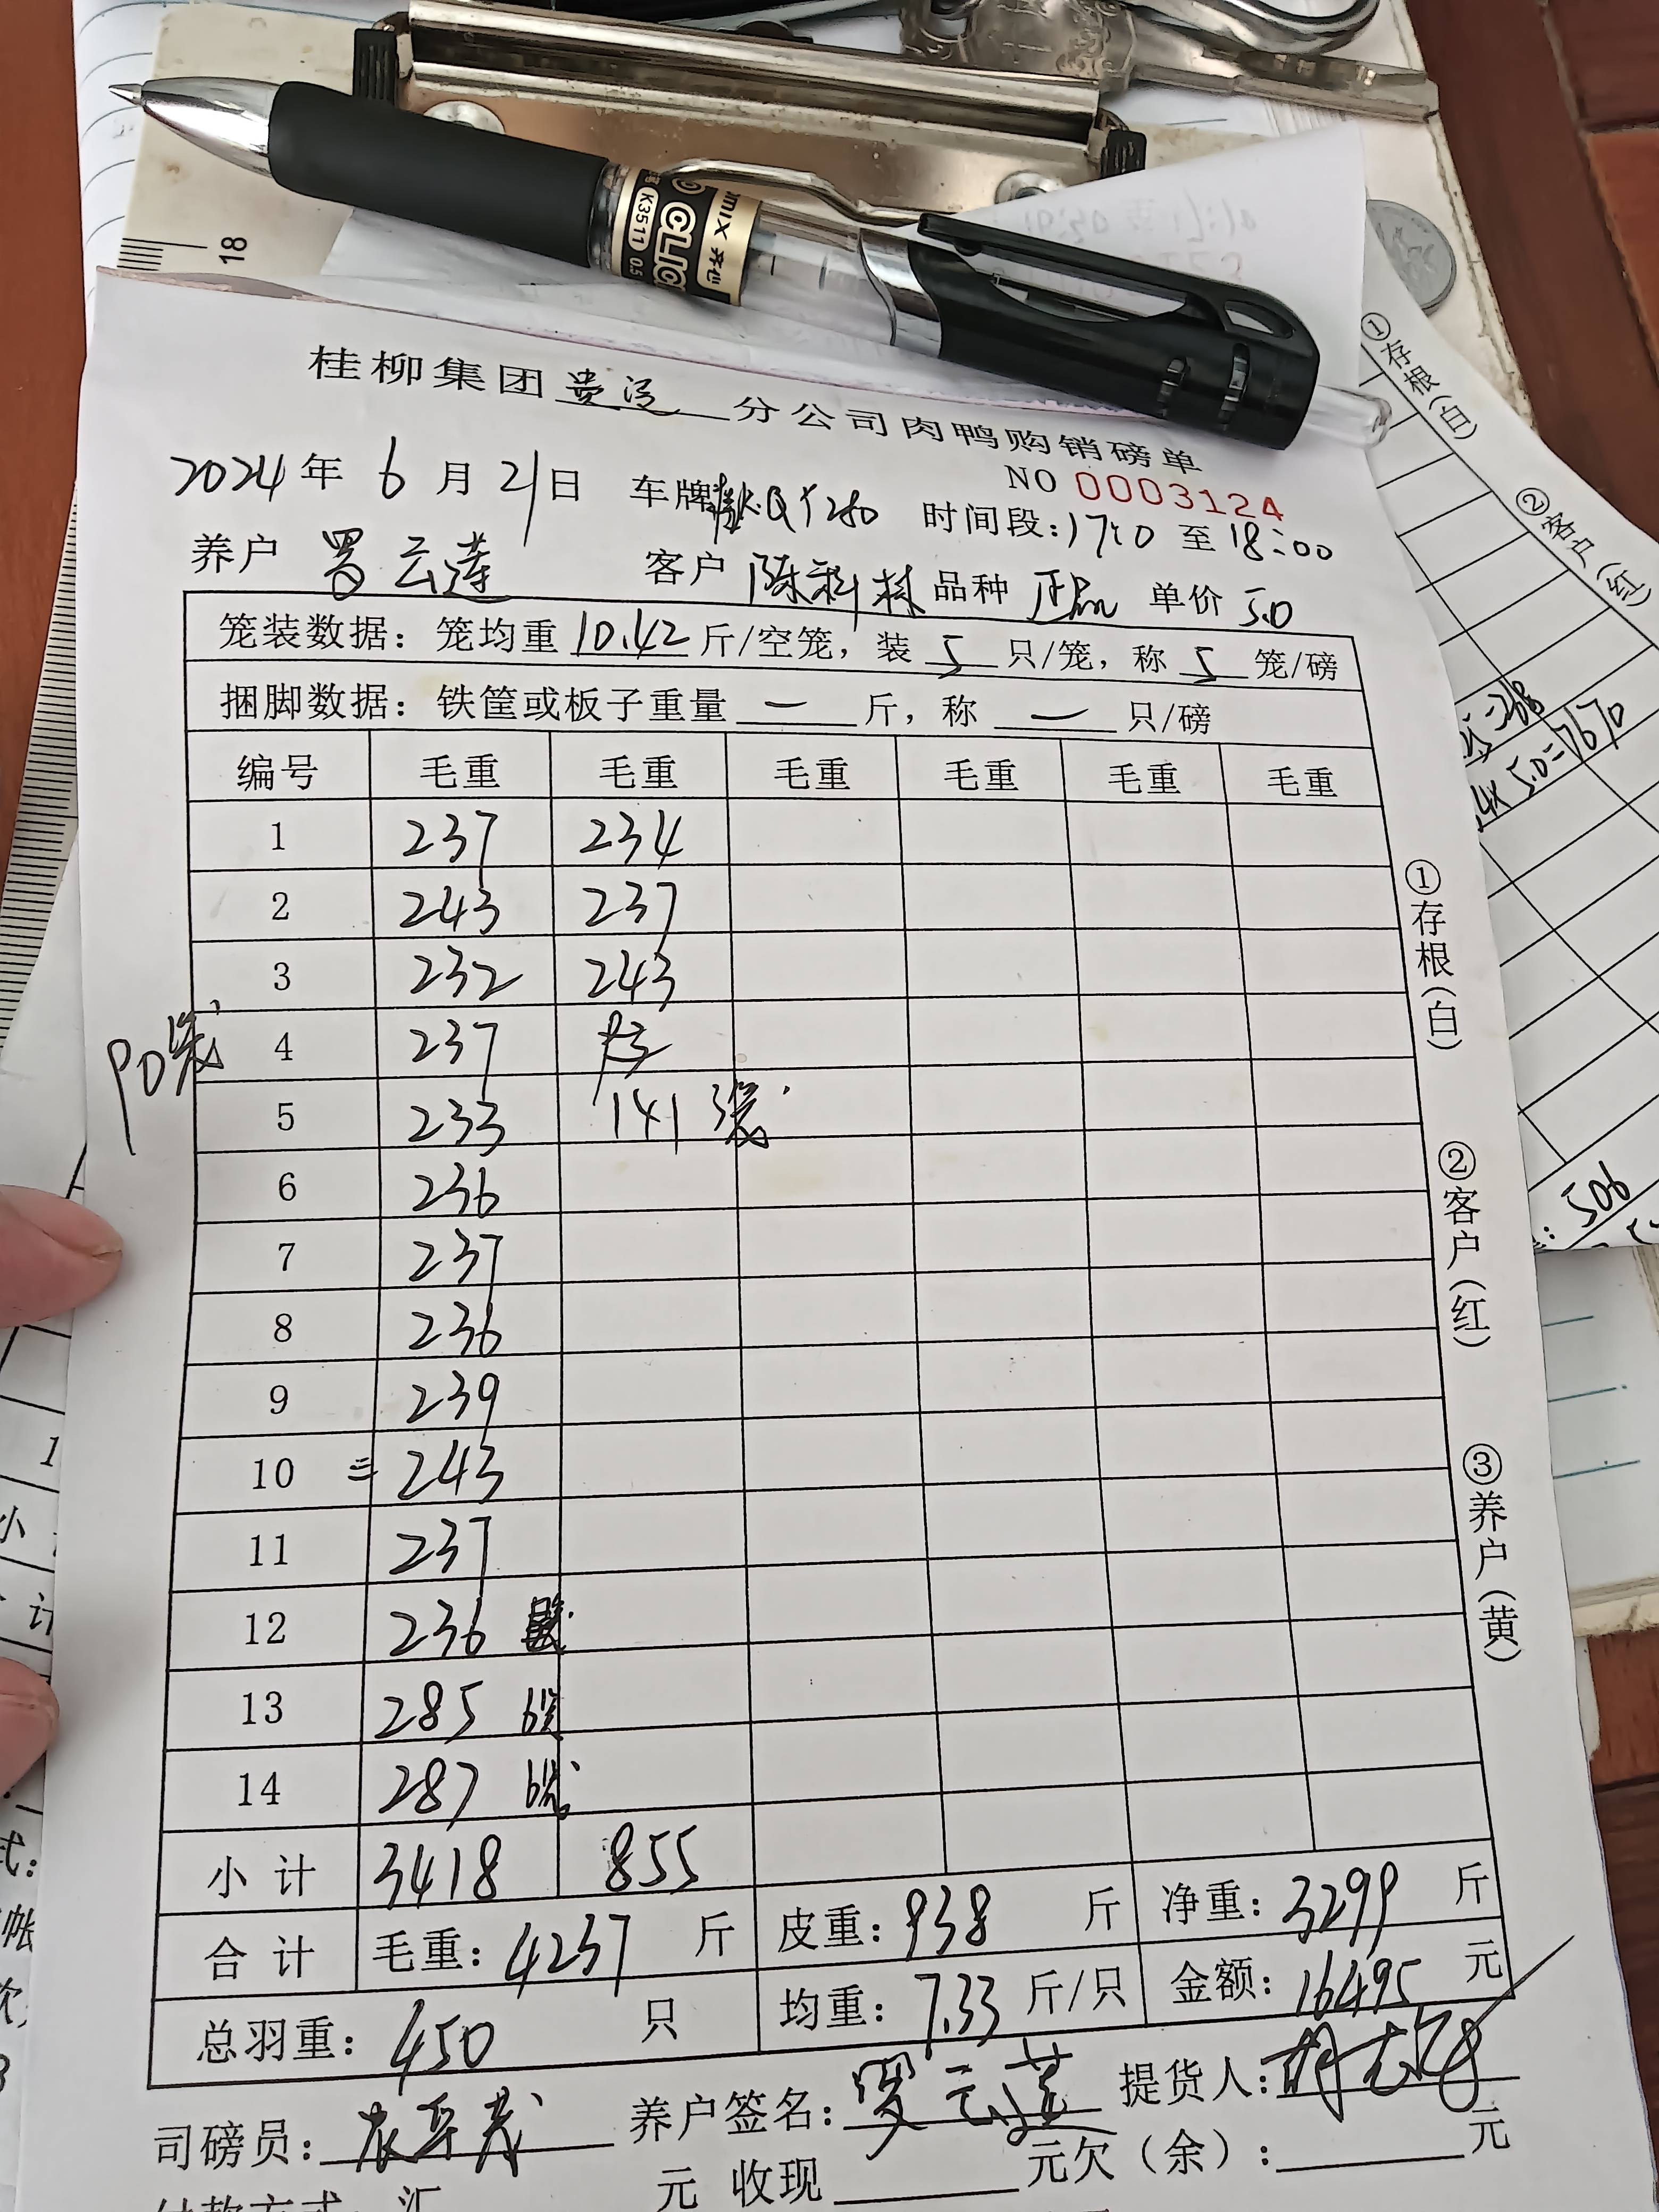 18
mix 开心
CLICK
K3511 0.5
桂柳集团贵港分公司肉鸭购销磅单
NO 0003124
2024年 6月21日 车牌 QY280 时间段:17:0 至 18:00
养户 罗云莲 客户 陈科林 品种 正品 单价 5.0
笼装数据: 笼均重 10.42 斤/空笼, 装 5 只/笼, 称 5 笼/磅
捆脚数据: 铁筐或板子重量 — 斤, 称 — 只/磅
编号 毛重 毛重 毛重 毛重 毛重 毛重
1 237 234
2 243 237
3 232 243
90笼 4 237
5 233 141 3笼
6 236
7 237
8 236
9 239
10 = 243
11 237
12 236
13 285 6笼
14 287 6笼
小计 3418 855
合计 毛重: 4237 斤 皮重: 938 斤 净重: 3299 斤
总羽重: 450 只 均重: 7.33 斤/只 金额: 16495 元
司磅员: 养户签名: 罗云莲 提货人:
付款方式: 汇 元 收现 元欠(余): 元
①存根(白)
②客户(红)
③养户(黄)
①存根(白)
②客户(红)
4×5.0=7670
506